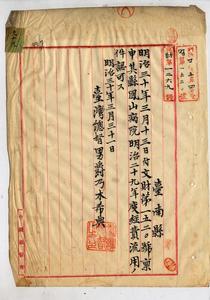 臺南縣
明治三十年三月十三日付文財第一五二〇號稟
申其縣鳳山病院明治二十九年度經費流用ノ
件認可ス
明治三十年三月三十一日
臺灣總督男爵乃木希典